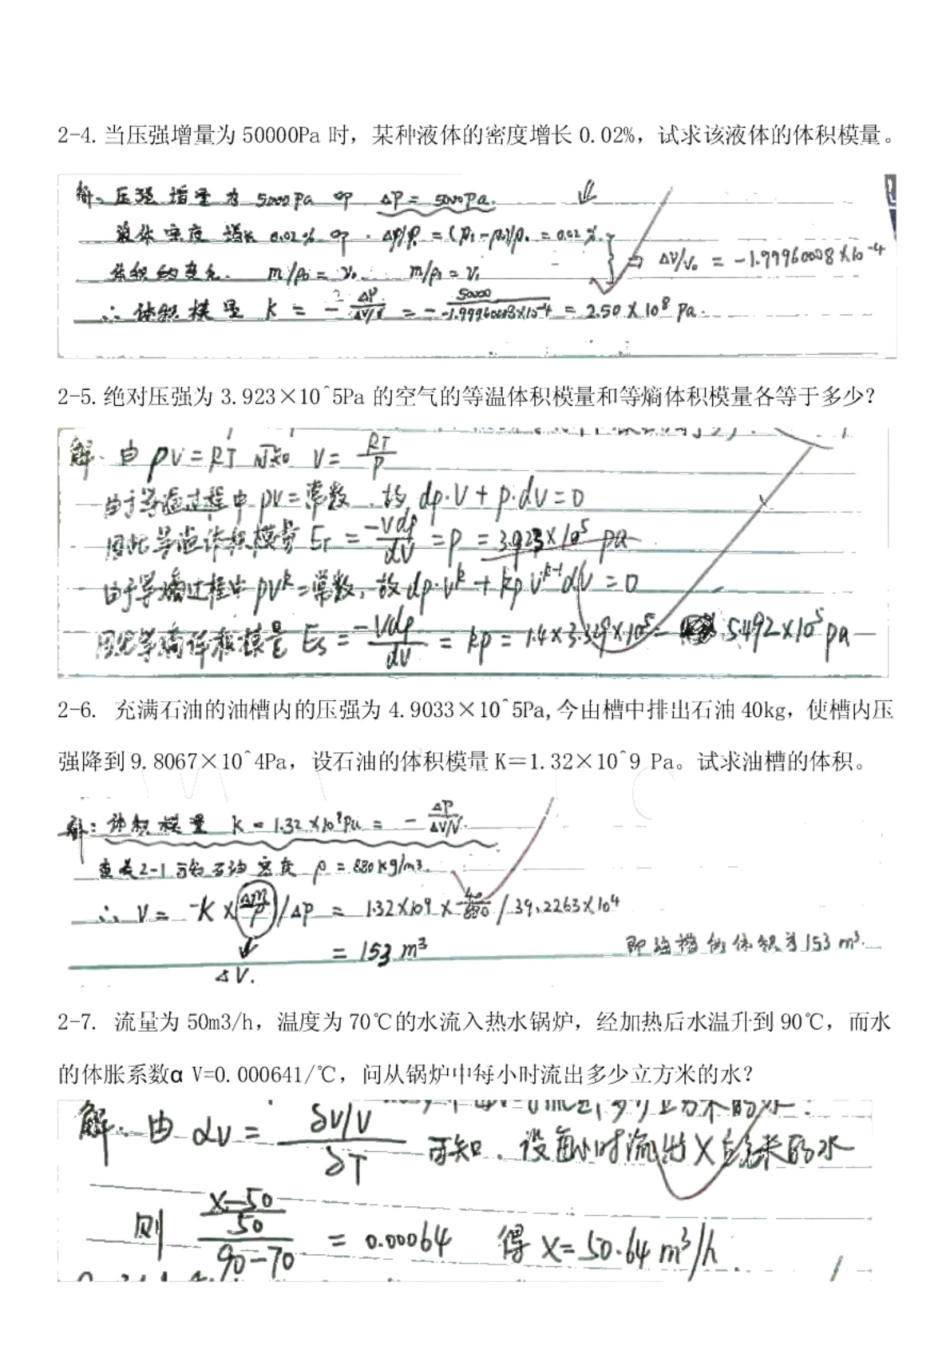 2-4. 当压强增量为 50000Pa 时，某种液体的密度增长 0.02%，试求该液体的体积模量。
解、压强增量为 5000Pa 即 ΔP = 5000Pa.
液体密度增长 0.02% 即. Δρ/ρ. = (ρ₁-ρ₀)/ρ. = 0.02%
体积的变化. m/ρ₀ = V₀. m/ρ₁ = V₁ ⇒ ΔV/V₀ = -1.99960008×10⁻⁴
∴ 体积模量 K = - ΔP/(ΔV/V) = - 50000/(-1.99960008×10⁻⁴) = 2.50×10⁸ Pa.
2-5. 绝对压强为 3.923×10^5Pa 的空气的等温体积模量和等熵体积模量各等于多少？
解. 由 PV=RT 可知 V = RT/P
由于等温过程中 PV=常数. 故 dp·V + p·dV=0
因此等温体积模量 E_T = -Vdp/dV = P = 3.923×10⁵ pa
由于等熵过程中 PV^k=常数, 故 dp·V^k + kpV^(k-1)dV = 0
因此等熵体积模量 Es = -Vdp/dV = kp = 1.4×3.329×10⁵ = 5.492×10⁵ pa
2-6. 充满石油的油槽内的压强为 4.9033×10^5Pa,今由槽中排出石油 40kg，使槽内压
强降到 9.8067×10^4Pa，设石油的体积模量 K＝1.32×10^9 Pa。试求油槽的体积。
解: 体积模量 K = 1.32×10⁹Pa = - ΔP/(ΔV/V).
查表2-1 可知石油密度 ρ = 880kg/m3.
∴ V = -K×(Δm/ρ)/ΔP = 1.32×10⁹×40/880 / 39.2263×10⁴
= 153 m³ 即油槽的体积为 153 m³.
ΔV.
2-7. 流量为 50m3/h，温度为 70℃的水流入热水锅炉，经加热后水温升到 90℃，而水
的体胀系数α V=0.000641/℃，问从锅炉中每小时流出多少立方米的水？
解. 由 αv = (δV/V)/δT 可知. 设每小时流出 X 立方米的水
则 ((X-50)/50)/(90-70) = 0.00064 得 X=50.64 m³/h